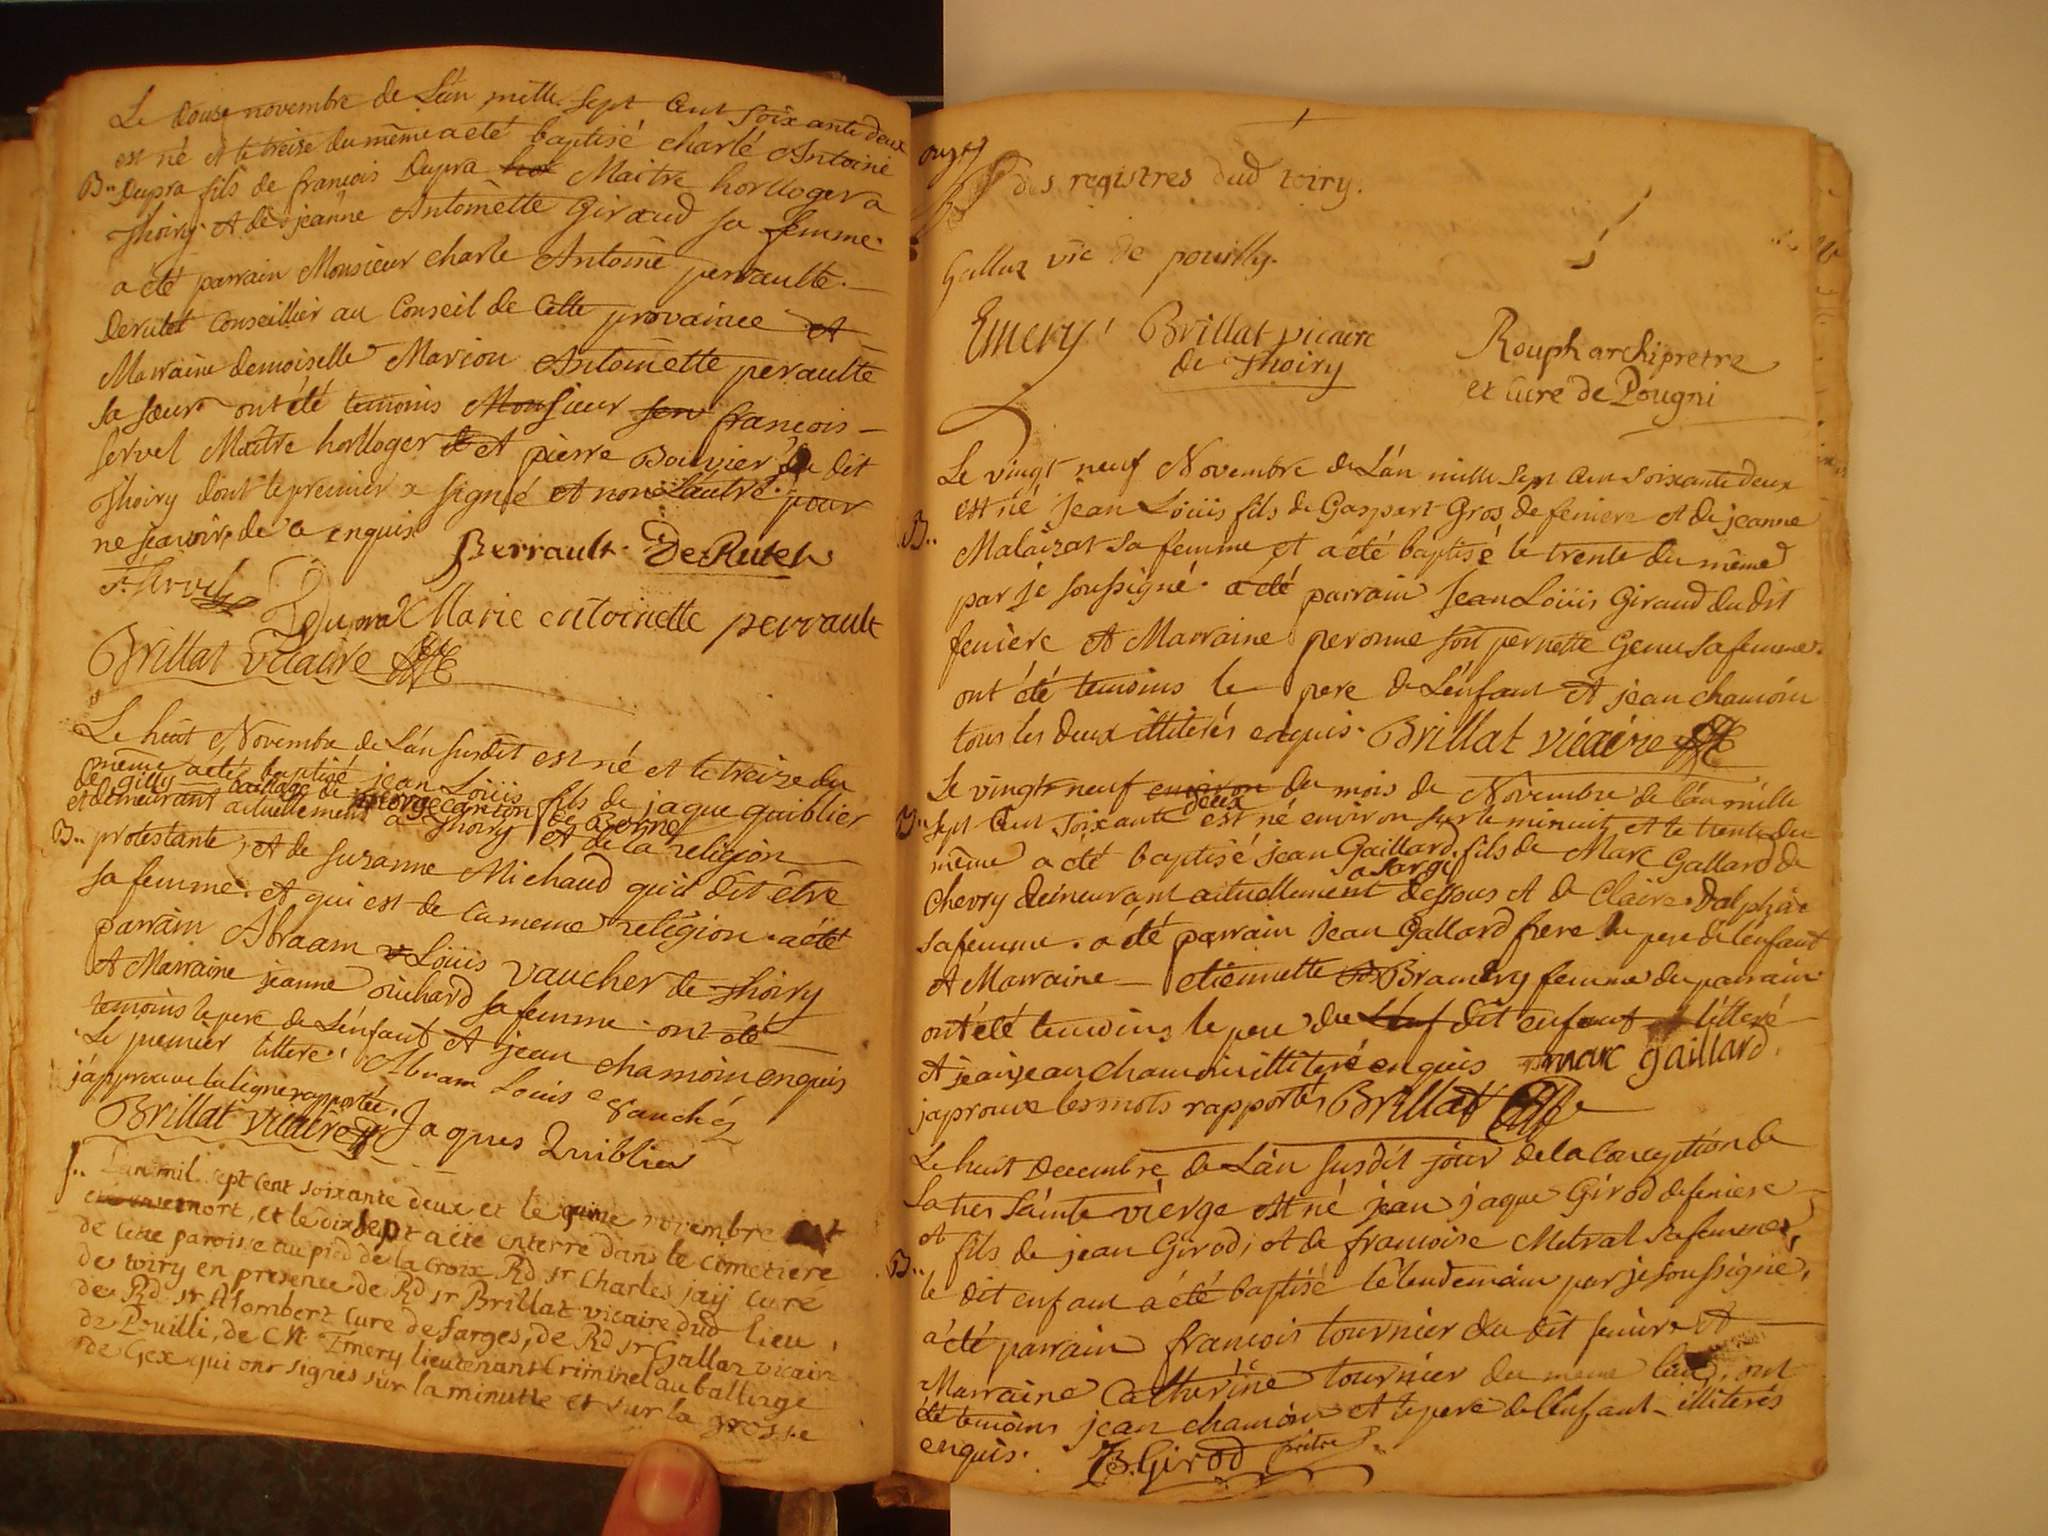 Le douse novembre de L'an mille sept cent soixante deux
est né et le treize du même a eté baptisé charle Antoine
B.. Dupra fils de françois Dupra hol Maitre horlloger a
Thoiry et de jeanne Antoinette Giraud sa femme.
a été parrain Monsieur charle Antoine perraulte.
Derutet Conseillier au Conseil de Cette provaince et
Marraine demoiselle Marion Antoinette peraulte
sa sœur ont été temoins Monsieur serv françois
servel Maitre horlloger et pierre Bouvier du dit
Thoiry dont le premier a signé et non L'autre pour
ne scavoir, de ce enquis Perrault De Rutet
fr. servel
Dupra Marie entoinette perrault
Brillat vicaire
Le huit Novembre de L'an susdit est né et le treize du
même a eté baptisé jean Loüis fils de jaque quiblier
de Gilly Bailliage de Canton de Berne
et demeurant actuellement a Thoiry et de la religion
B.. protestante, et de suzanne Michaud qu'il dit être
sa femme. et qui est de la meme religion. a eté
parrain Abraam Loüis vaucher de Thoiry
et Marraine jeanne ouichard sa femme ont été
temoins le pere de L'enfant et jean chamoin enquis
Le premier litteré. Abram Louis vauché
j'approuve la ligne rapportée,
Brillat vicaire Jaques Quiblier
L'an mil sept cent soixante deux et le quinze novembre est
mort, et le dix sept a eté enterré dans le cimetiere
de cette paroisse au pied de la croix Rd sr Charles jaij curé
de toiry en presence de Rd sr Brillat vicaire dud lieu,
de Rd sr Alombert Curé de farges, de Rd sr Gallaz vicair
de Pouilli, de Mr Emery lieutenant Criminel au balliage
de Gex qui ont signés sur la minutte et sur la grosse
des registres dud toiry.
Gallaz vic de pouilly.
Emery Brillat vicaire Rouph archipretre
de Thoiry et curé de Pougni
Le vingt neuf Novembre de L'an mille sept cent soixante deux
est né jean Loüis fils de Gaspart Gros de feniere et de jeanne
B.. Malaizat sa femme et a été baptisé le trente du même
par je soussigné. a eté parrain jean Loüis Giraud du dit
feniere et Marraine peronne soit pernette Genu sa femme.
ont été temoins le pere de L'enfant et jean chamoin
tous les deux illiterés enquis. Brillat vicaire
Le vingt neuf environ du mois de Novembre de l'an mille
B.. sept cent soixante deux est né environ sur le minuit et le trente du
même a été baptisé jean Gaillard fils de Marc Gallard de
chevry demeurant actuellement a sergi dessous et de Claire Dalphin
sa femme. a été parrain jean Gallard frere du pere de l'enfant
et Marraine etiennette Bramery femme du parrain
ont été temoins le pere du dit enfant litteré
et jean chamoin illiteré enquis marc gaillard.
japrouve les mots rapportés Brillat
Le huit decembre de L'an susdit jour de la Conception de
la tres Sainte vierge est né jean jaque Girod de feniere
et fils de jean Girod, et de francoise Metral sa femme,
B.. le dit enfant a été baptisé le lendemain par je soussigné,
a été parrain françois tournier du dit feniere et
Marraine Catherine tournier du meme lieu, ont
été temoins jean chamoin et le pere de l'enfant illiterés
enquis. B. Girod prêtre